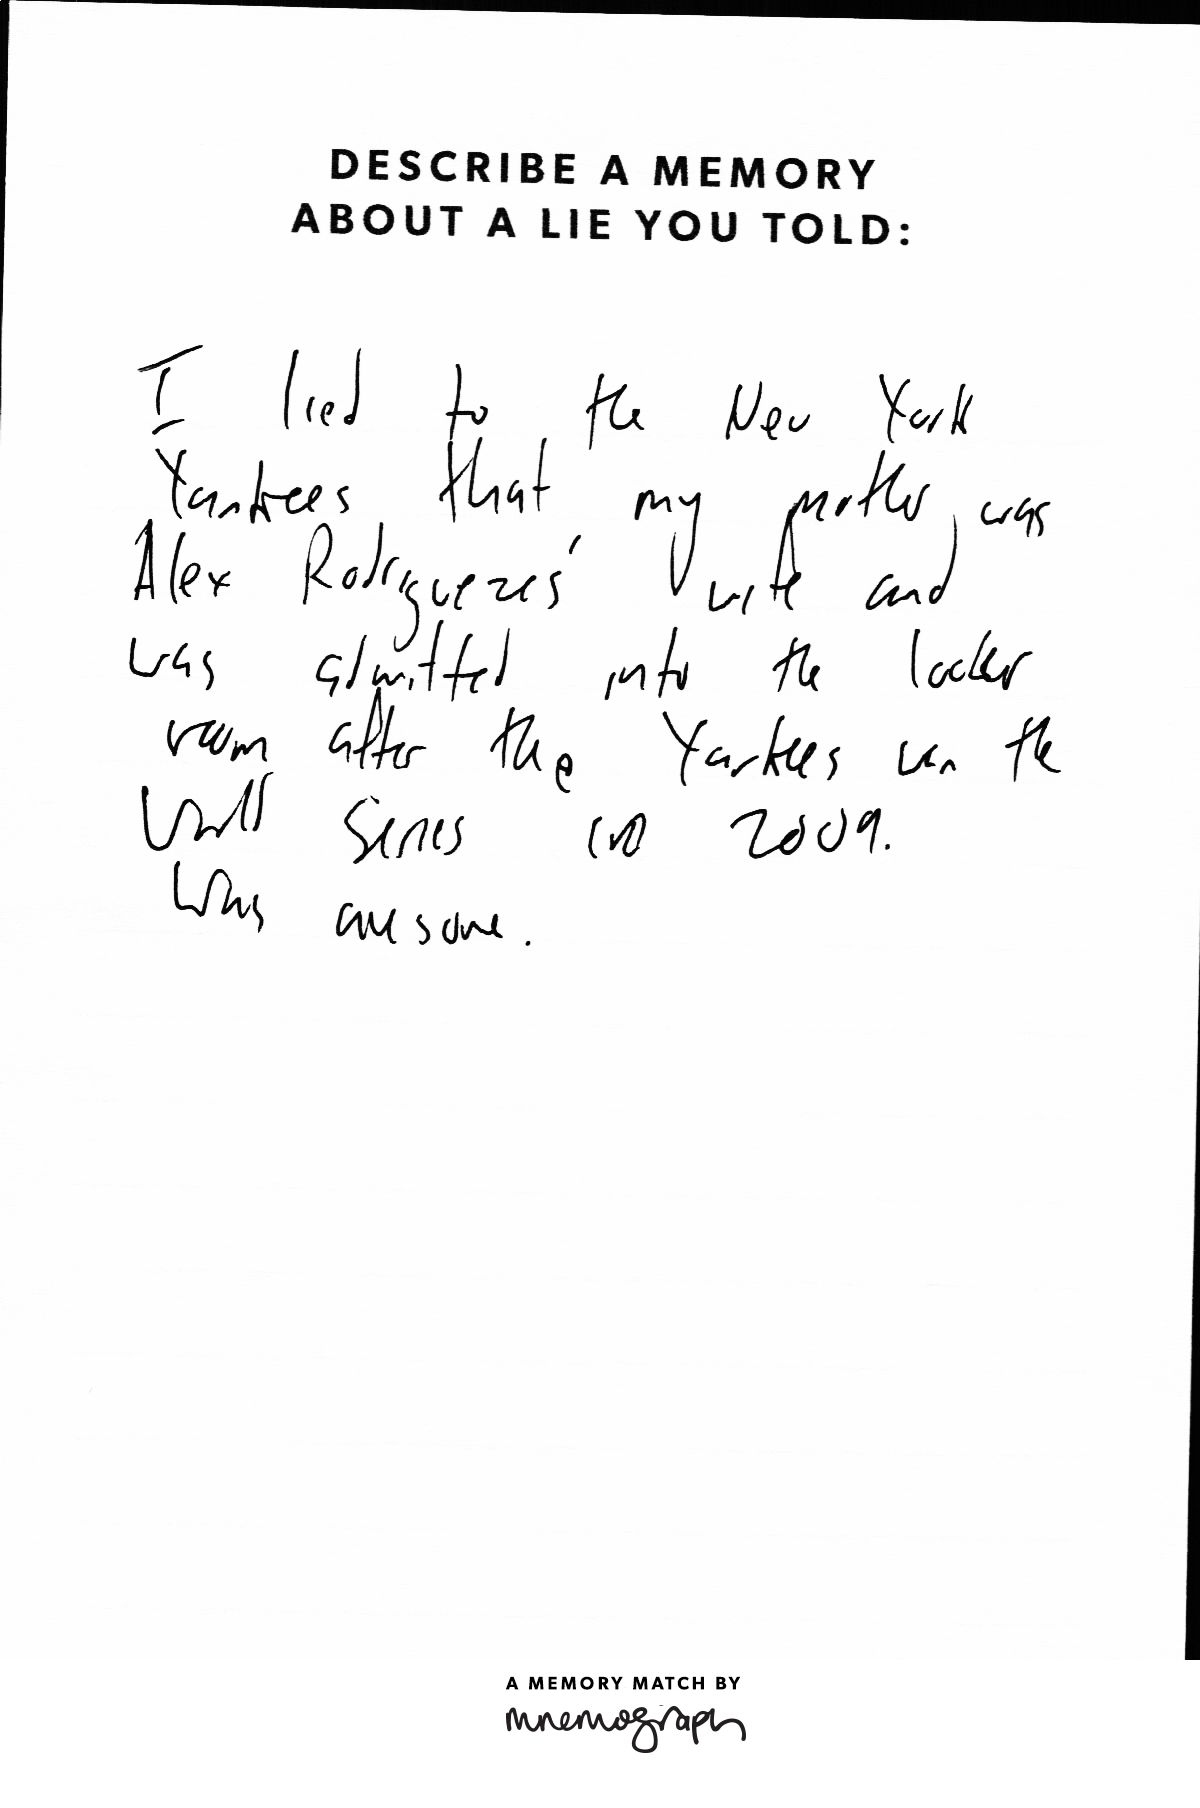 DESCRIBE A MEMORY
ABOUT A LIE YOU TOLD:
I lied to the New York
Yankees that my mother was
Alex Rodriguezes' wife and
was admitted into the locker
room after the Yankees won the
World Series in 2009.
Was awesome.
A MEMORY MATCH BY
mnemograph